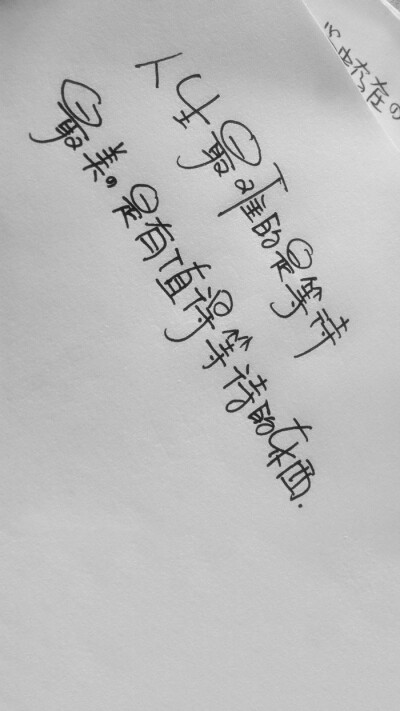 人生最难的是等待
最美。是有值得等待的东西.
存在の